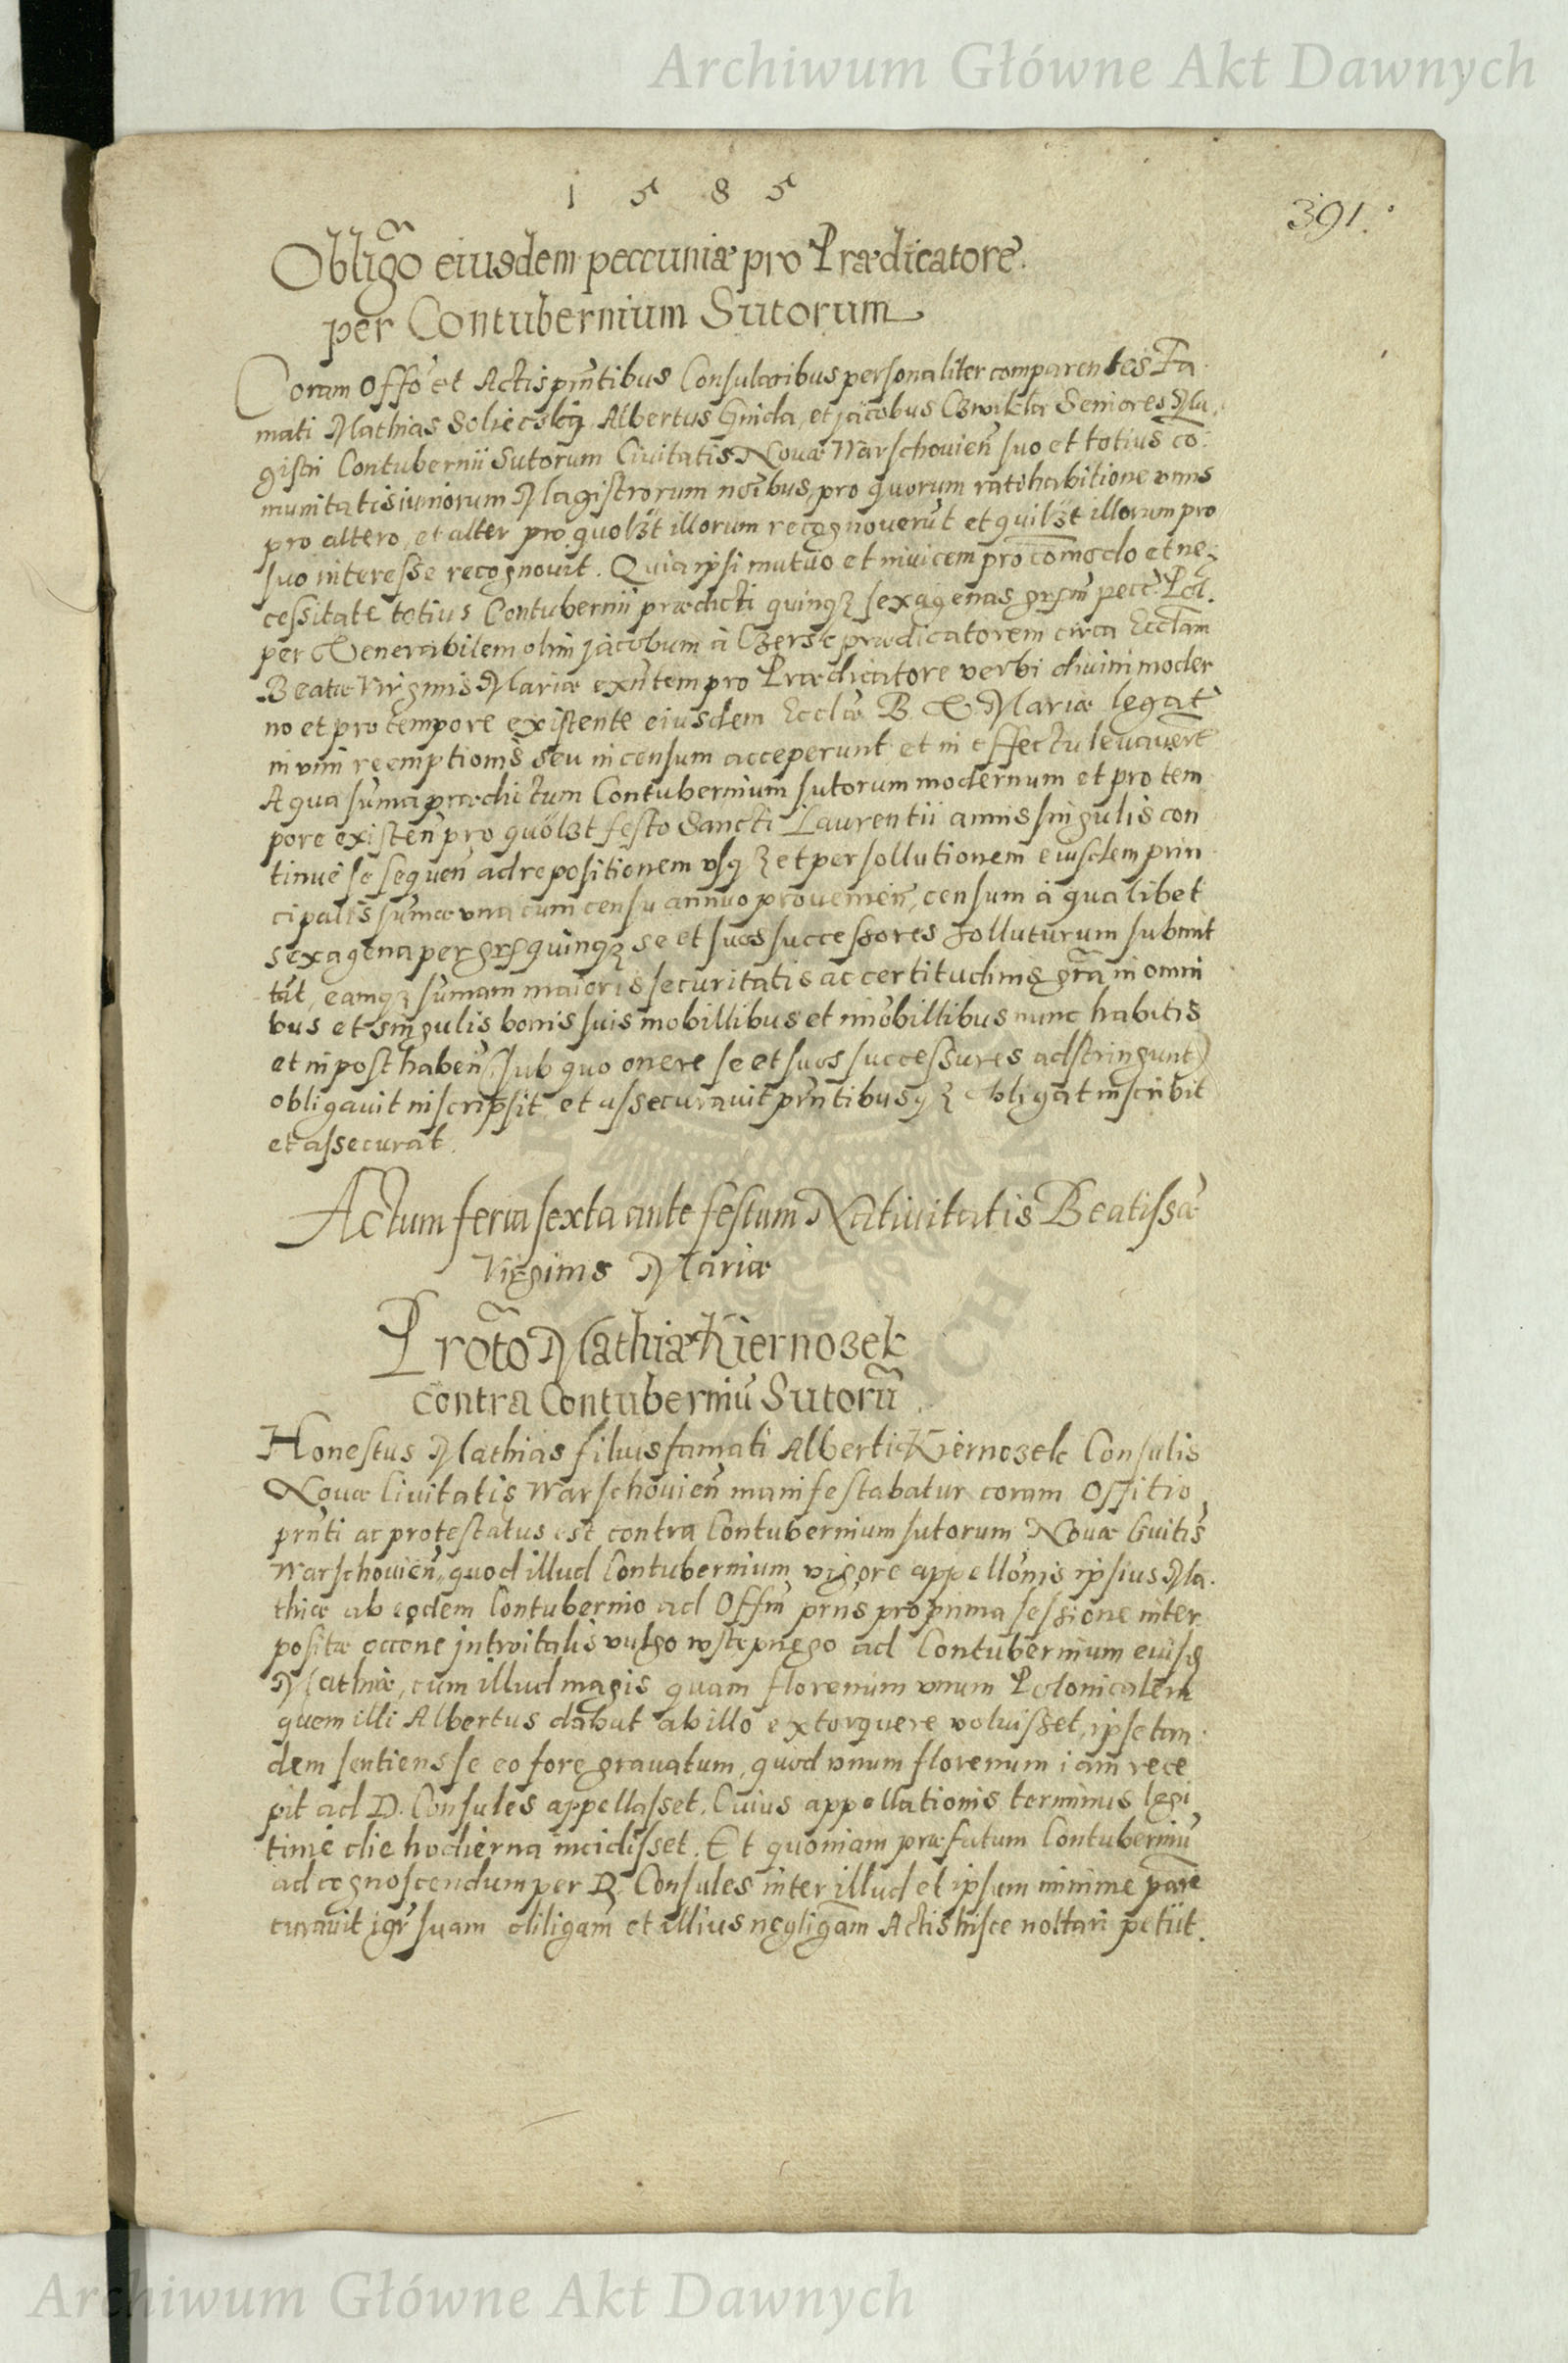 Archiwum Główne Akt Dawnych
1 5 8 5
391.
Obligo eiusdem peccuniæ pro Prædicatore
per Contubernium Sutorum
Coram Offo et Actis prntibus Consularibus personaliter comparentes Fa
mati Mathias Albertus et Jacobus Seniores Ma
gistri Contubernii Sutorum Civitatis Novæ Warschovien suo et totius co
munitatis iuniorum Magistrorum noibus, pro quorum ratihabitione unus
pro altero, et alter pro quolzt illorum recognoverut et quilzt illorum pro
suo interesse recognovit. Quia ipsi mutuo et invicem pro comodo et ne
cessitate totius Contubernii prædicti quinqz sexagenas pecc. Pol.
per Venerabilem olim Jacobum à Czersc prædicatorem circa Ecclam
Beatæ Virginis Mariæ exntem pro Prædicatore verbi divini moder
no et pro tempore existente eiusdem Ecclæ B. V. Mariæ legat
in vim reemptionis seu in censum acceperunt et in effectu levavert
A qua suma prædictum Contubernium sutorum modernum et pro tem
pore existen pro quolzt festo Sancti Laurentii annis singulis con
tinue se sequen ad repositionem vsqz et persollutionem eiusdem prin
cipalis sumæ una cum censu annuo provenien, censum à qualibet
sexagena per grs quinqz se et suos successores solluturum submit
tat, eamqz sumam maioris securitatis ac certitudinis gra in omni
bus et singulis bonis suis mobillibus et imobillibus nunc habitis
et in post haben (sub quo onere se et suos successures adstringunt)
obligavit inscripsit et assecuravit prntibusqz obligat inscribit
et assecurat.
Actum feria sexta ante festum Nativitatis Beatissæ
Virginis Mariæ
Proto Mathiæ Kiernozek
contra Contuberniu Sutoru
Honestus Mathias filius famati Alberti Kiernozek Consulis
Novæ Civitatis Warschovien manifestabatur coram Offitio
prnti ac protestatus est contra Contubernium sutorum Novæ Civitis
Warschovien, quod illud Contubernium vigore appellonis ipsius Ma
thiæ ab eodem Contubernio ad Offm prns pro prima sessione inter
positæ occone introitalis vulgo wstępnego ad Contubernium
Mathiæ, cum illud magis quam florenum unum Polonicalem
quem illi Albertus dabat ab illo extorquere voluisset, ipse tan
dem sentiens se eo fore gravatum, quod unum florenum iam rece
pit ad D. Consules appellasset. Cuius appellationis terminus legi
time die hodierna incidisset. Et quoniam præfatum Contuberniu
ad cognoscendum per D. Consules inter illud et ipsum minime
curavit igr suam diligam et illius negligam Actis hisce nottari petiit.
Archiwum Główne Akt Dawnych